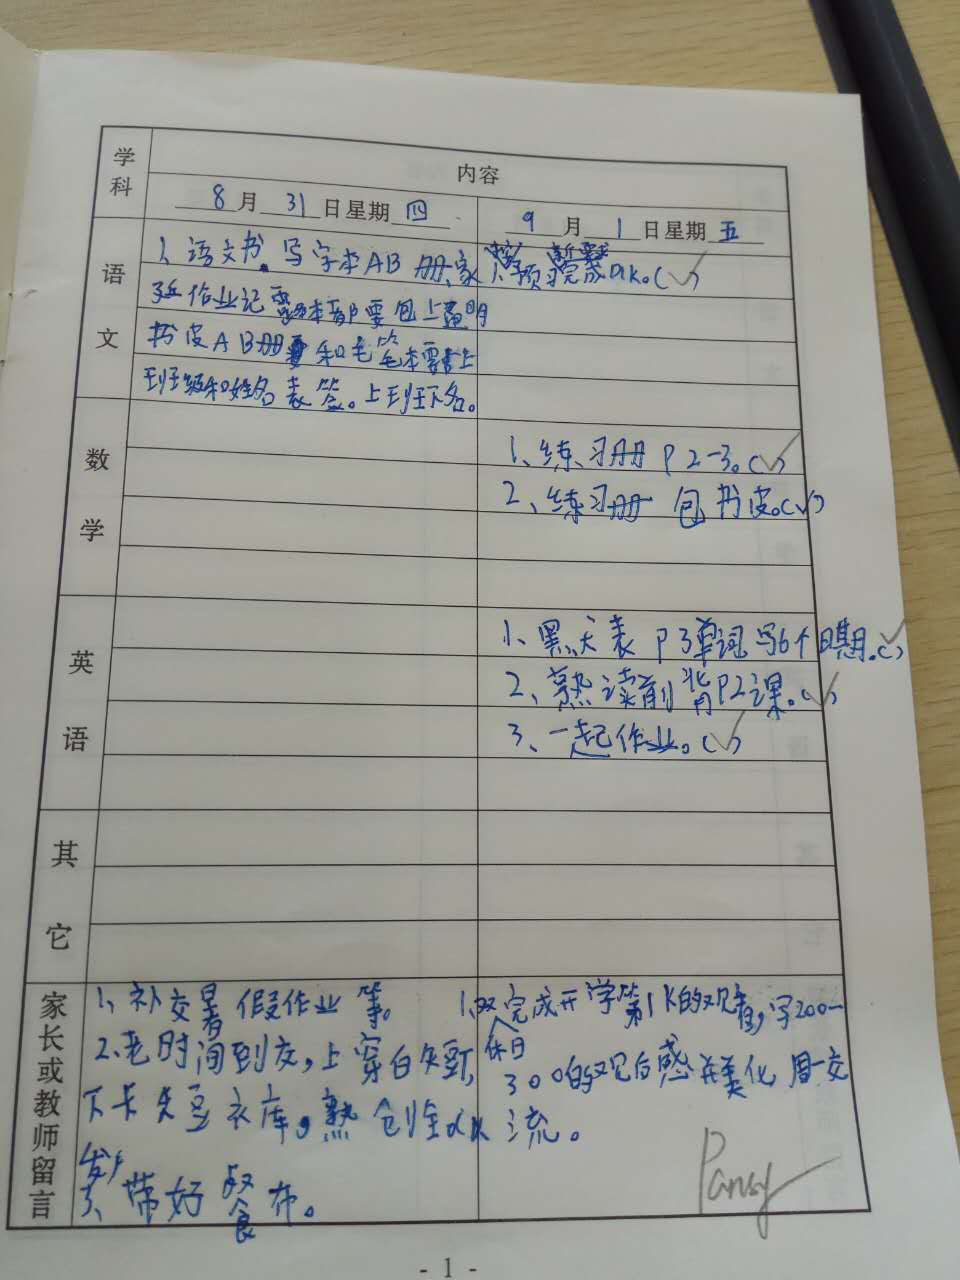 学科
内容
8月31日星期四
9月1日星期五
语文
1、语文书、写字本AB册、家
作业记 本都要包上透明
书皮AB册 和毛笔本要写上
班级和姓名 。上到下名。
1、预习完成 。(✓)
数学
1、练习册P2-3。(✓)
2、练习册 包书皮。(✓)
英语
1、黑 表P3单词写6个日期。(✓)
2、熟读 背P2课。(✓)
3、一起作业。(✓)
其它
家长或教师留言
1、补交暑假作业等。
2、老时间到校,上穿白短
下 衣 。
3、带好餐布。
1、双休日完成开学第1K的观看,写200-
300的观后感并美化周一交
流。
Pansy
- 1 -